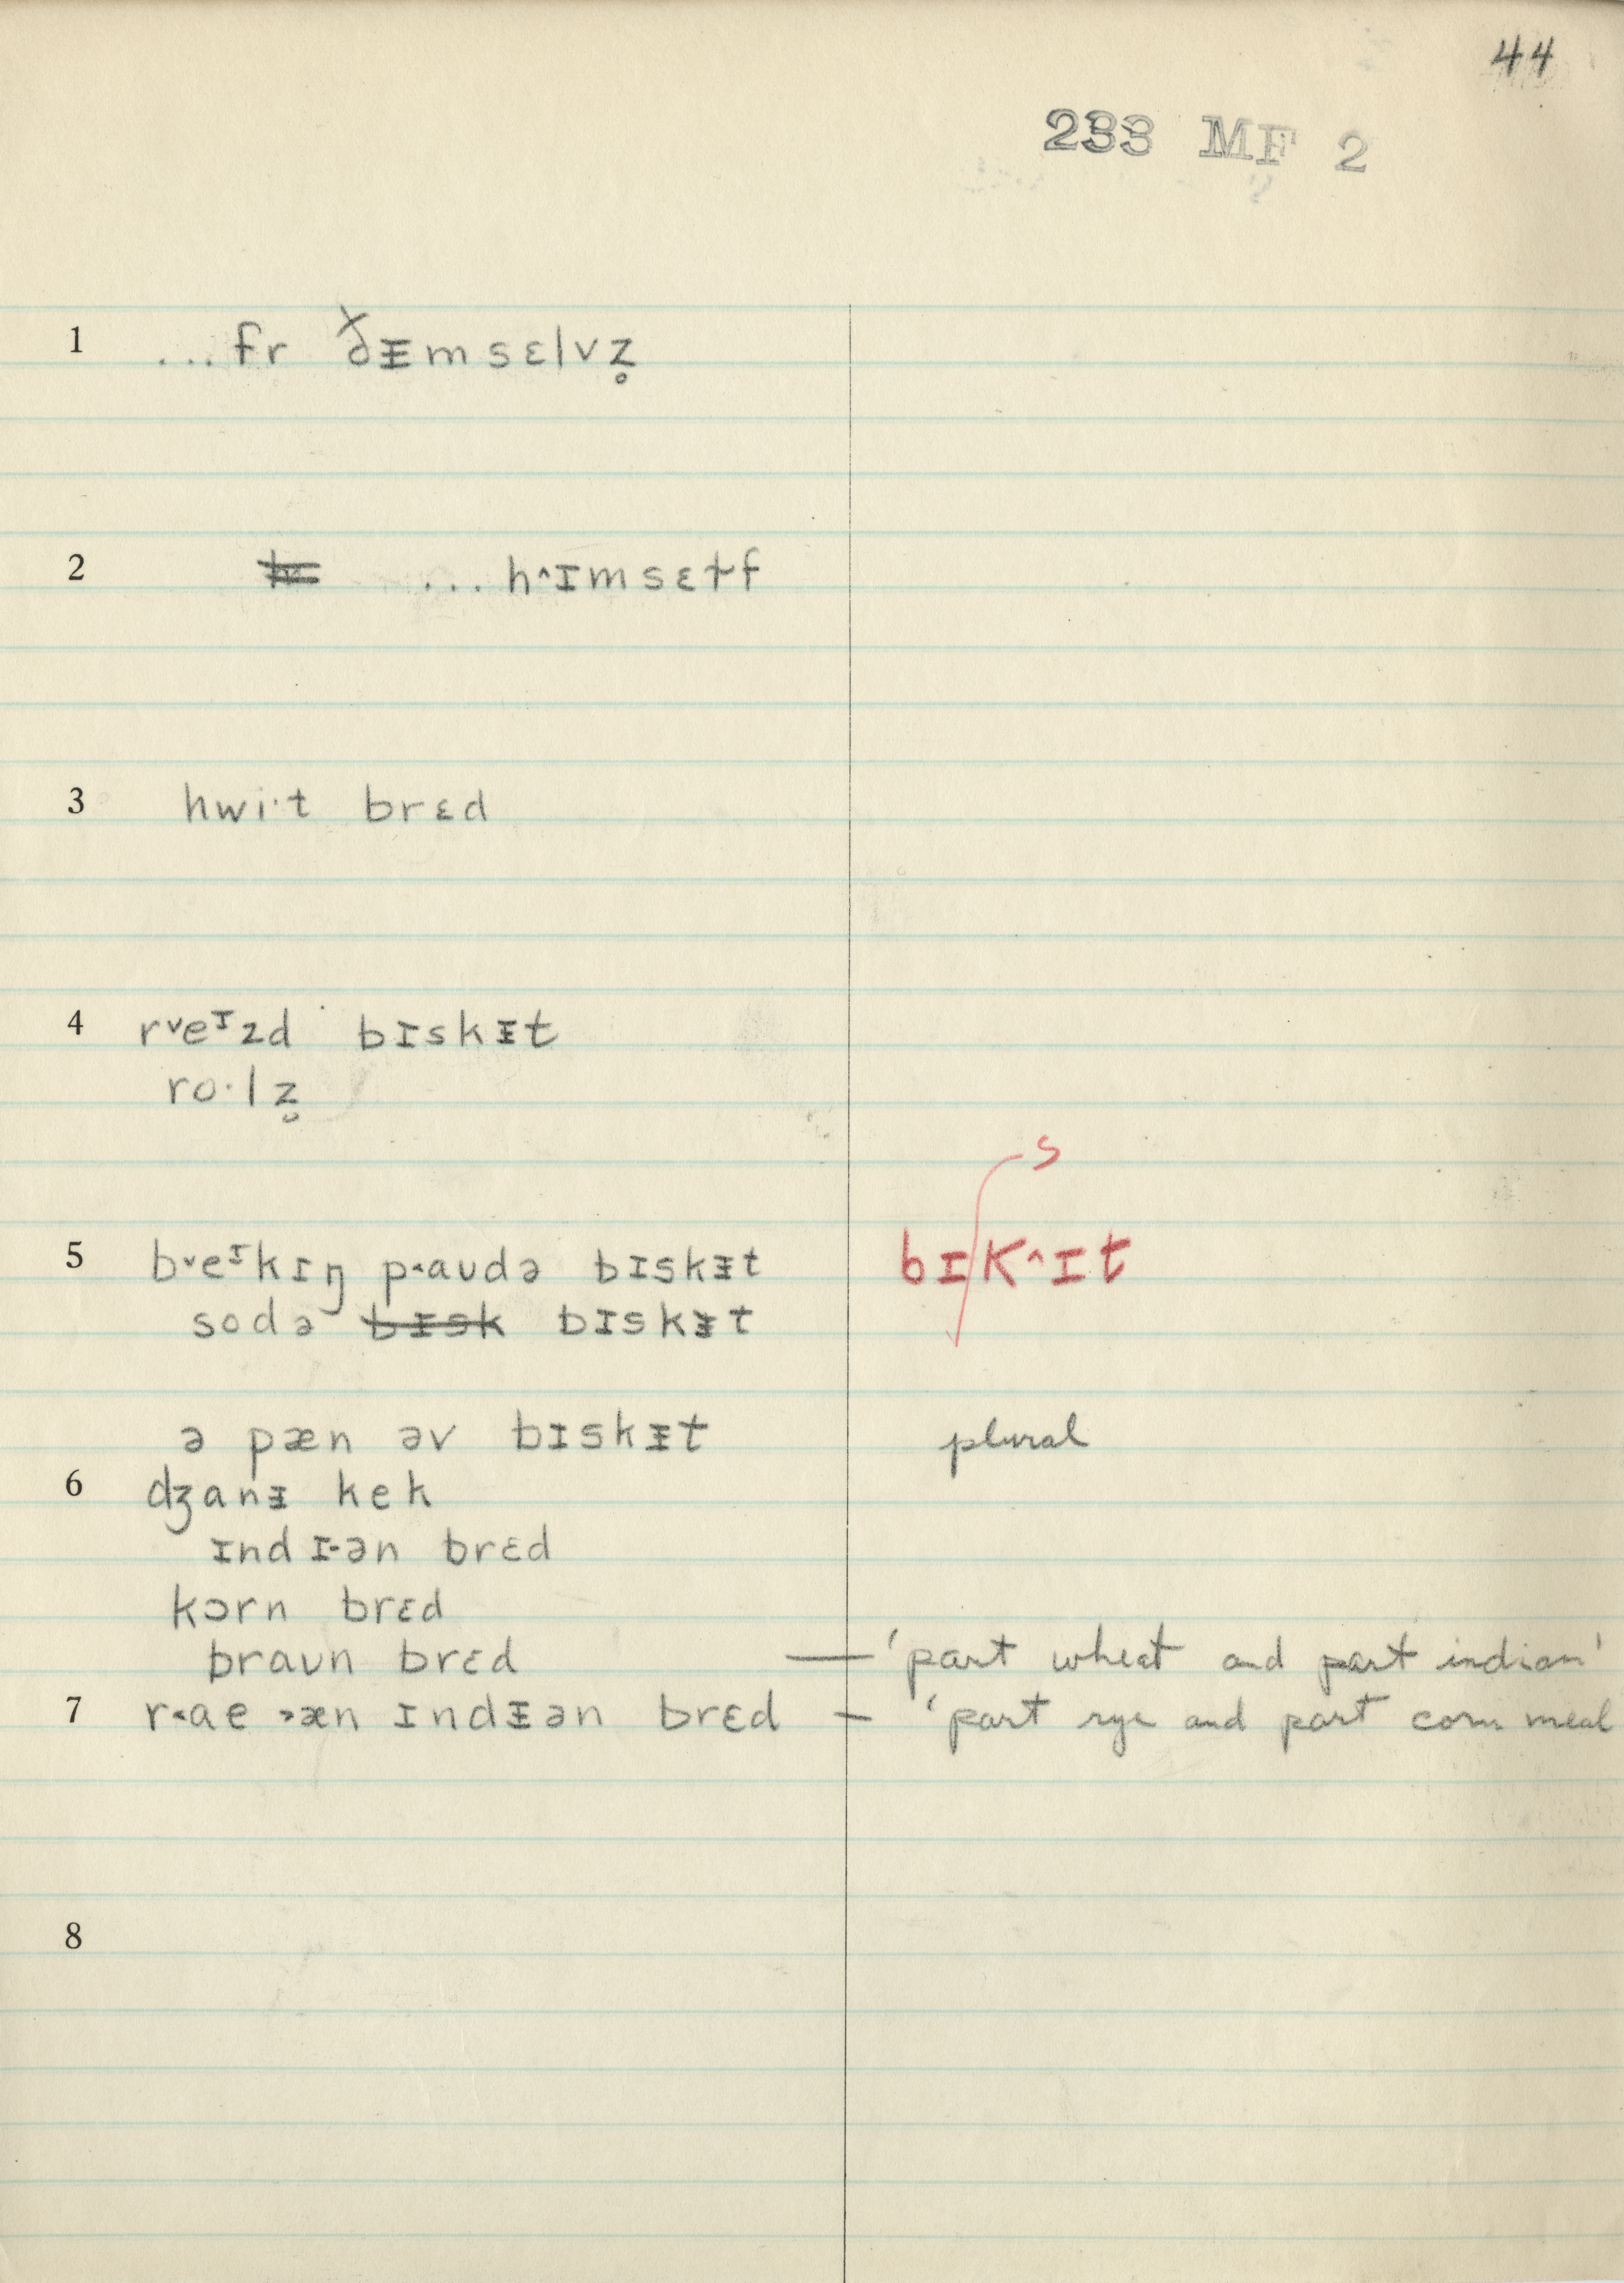 44
233 MF 2
1 ...fr ðᵻmsɛlvz̥
2 ...h˄ɪmsɛɫf
3 hwi·t brɛd
4 r˅eᶦzd bɪskᵻt
ro·lz̥
s
5 b˅eᶦkɪŋ p˂aʊdə bɪskᵻt bɪk˄ɪt
sodə bɪsk bɪskᵻt
ə pæn əv bɪskᵻt plural
6 dʒanᵻ kek
ɪndɪ-ən brɛd
kɔrn brɛd
braʊn brɛd — 'part wheat and part indian'
7 r˂ae ˃æn ɪndᵻən brɛd — 'part rye and part corn meal
8